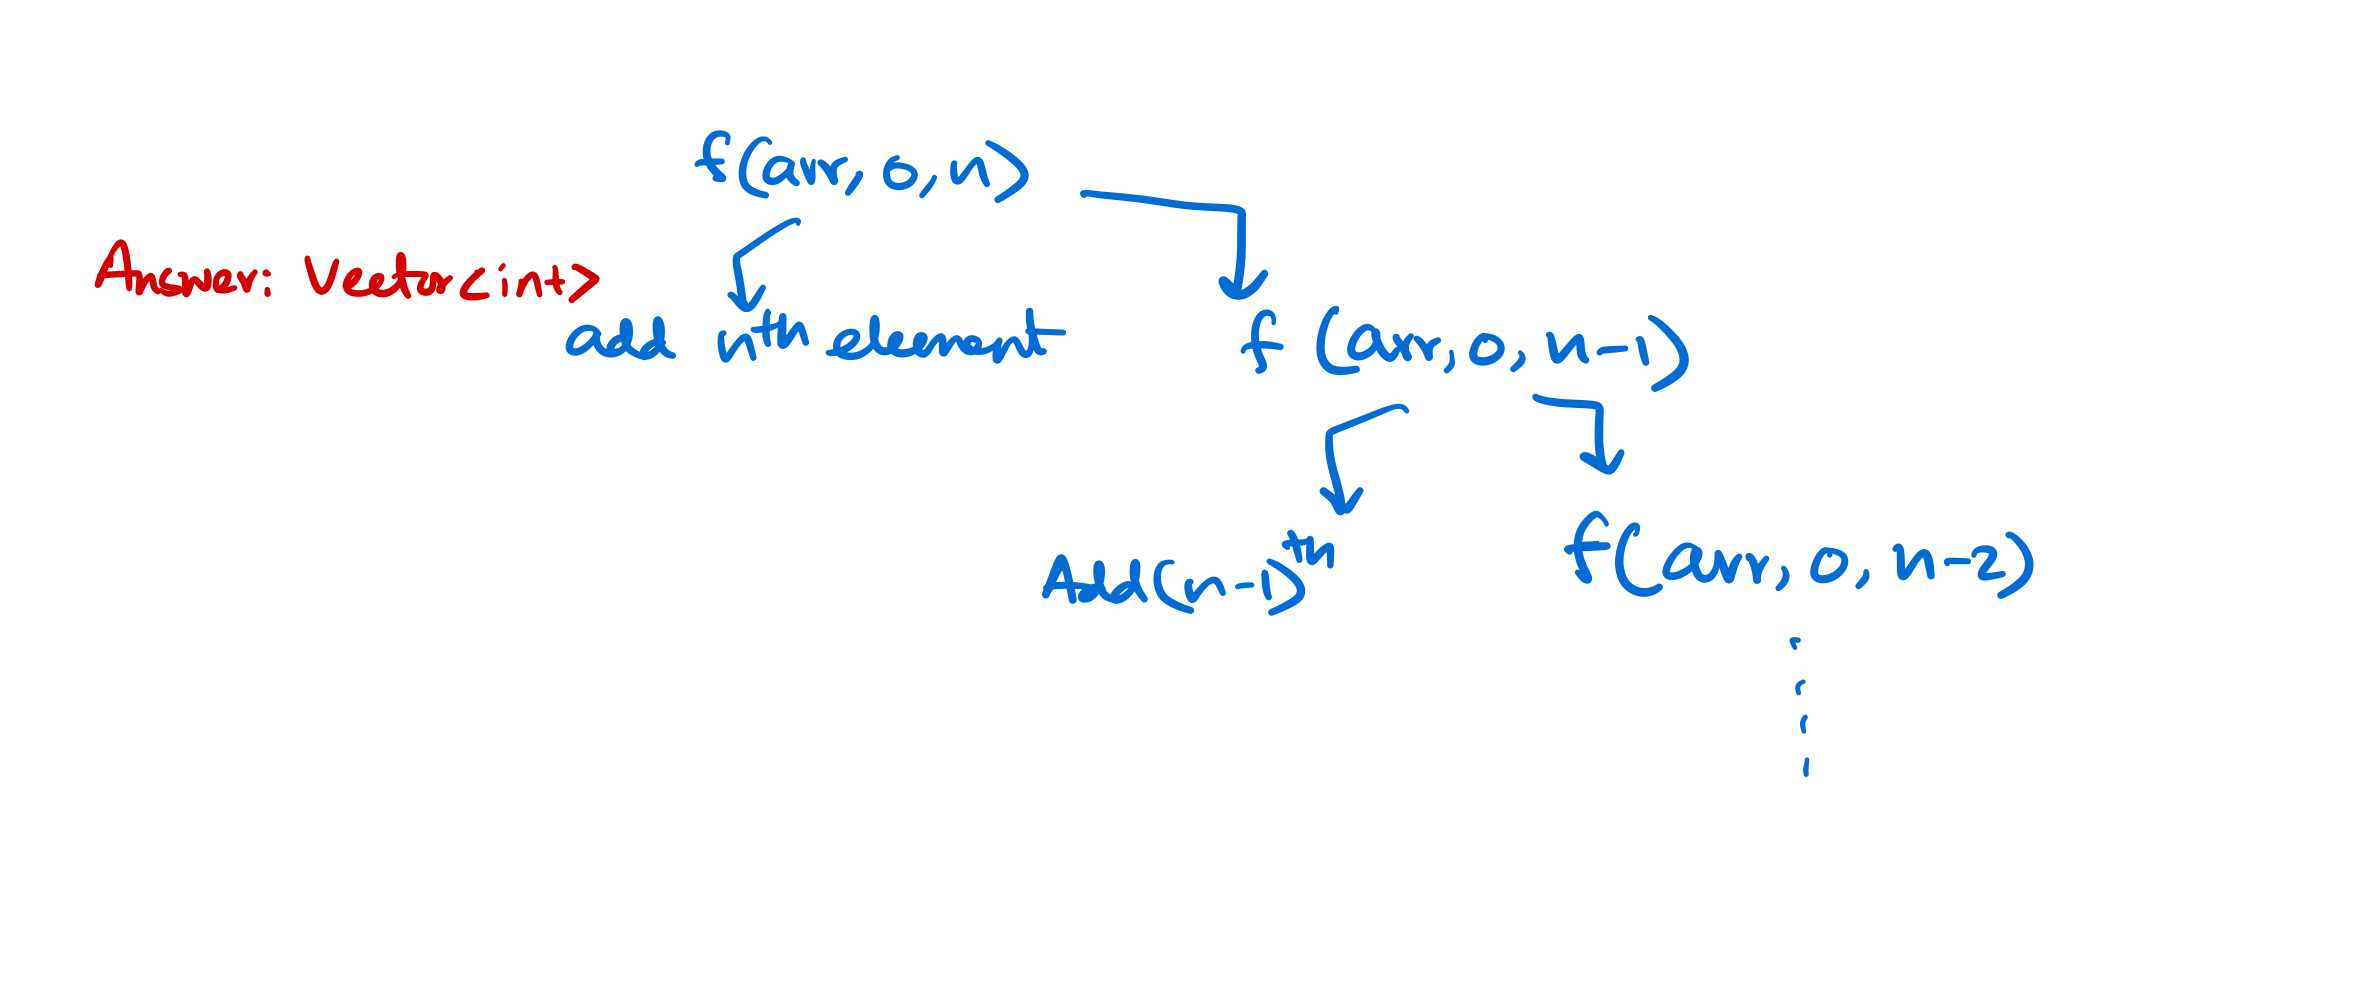 f(arr, 0, n)
Answer: Vector<int>
add nth element
f(arr, 0, n-1)
Add(n-1)th
f(arr, 0, n-2)